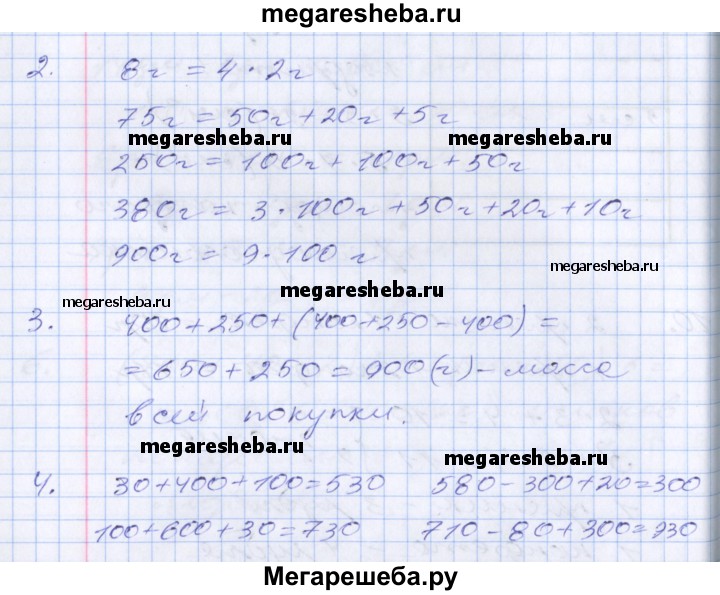 megaresheba.ru
2. 8г = 4 · 2г
75г = 50г + 20г + 5г
megaresheba.ru megaresheba.ru
250г = 100г + 100г + 50г
380г = 3 · 100г + 50г + 20г + 10г
900г = 9 · 100 г
megaresheba.ru
megaresheba.ru
megaresheba.ru
3. 400 + 250 + (400 + 250 - 400) =
= 650 + 250 = 900 (г) - масса
всей покупки.
megaresheba.ru
megaresheba.ru
4. 30 + 400 + 100 = 530 580 - 300 + 20 = 300
100 + 600 + 30 = 730 710 - 80 + 300 = 930
Мегарешеба.ру